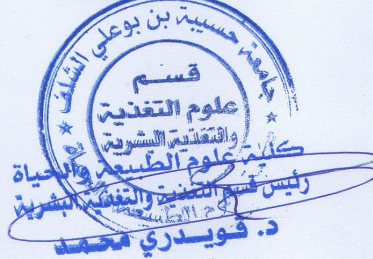 جامعة حسيبة بن بوعلي الشلف
قسم
علوم التغذية
والتغذية البشرية
كلية علوم الطبيعة والحياة
رئيس قسم التغذية والتغذية البشرية
د. قويدري محمد